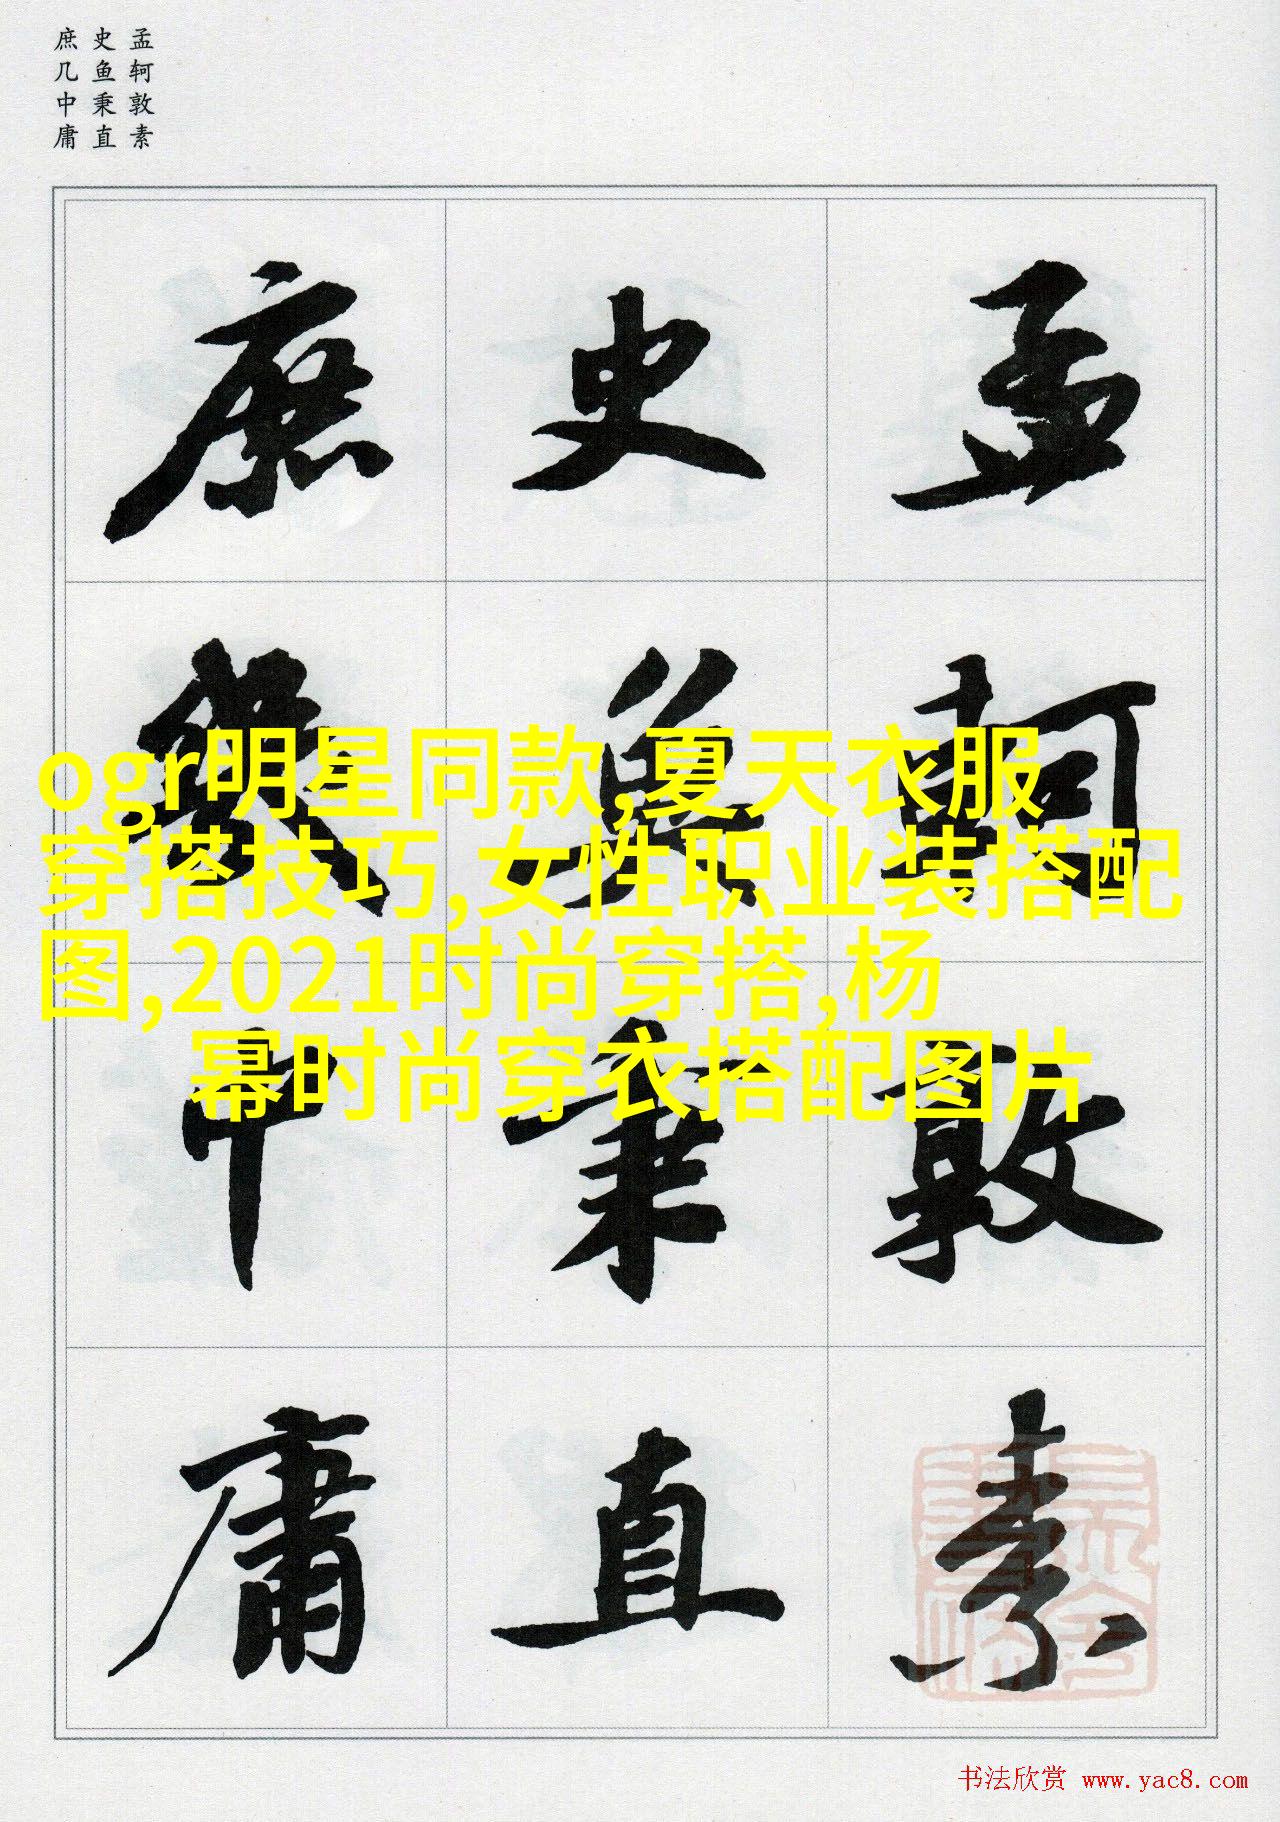 孟轲敦素
史鱼秉直
庶几中庸
孟軻敦素
史魚秉直
庶幾中庸
ogr明星同款,夏天衣服
穿搭技巧,女性职业装搭配
图,2021时尚穿搭,杨
幂时尚穿衣搭配图片
书法欣赏 www.yac8.com